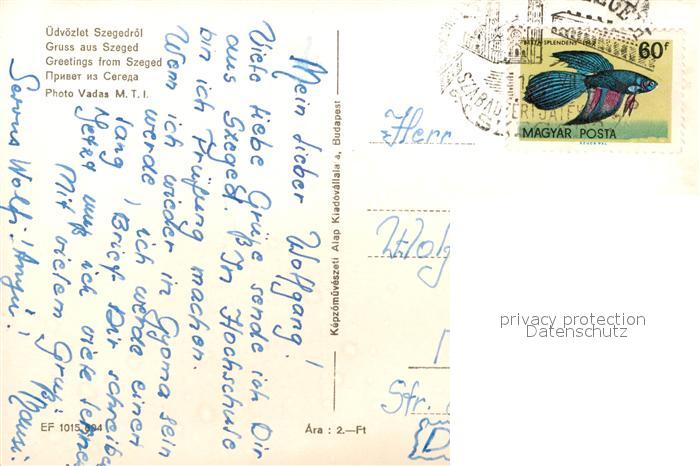 Üdvözlet Szegedről
Gruss aus Szeged
Greetings from Szeged
Привет из Сегеда
Photo Vadas M. T. I.
Mein lieber Wolfgang!
Viele liebe Grüße sende ich Dir
aus Szeged. In Hochschule
bin ich Prüfung machen.
Wenn ich wieder in Gyoma sein
werde ich werde einen
lang Brief Dir schreiben
Jetzt muß ich viele lernen
Mit vielem Gruß:
Servus Wolfi! Anyu!
EF 1015 694
Képzőművészeti Alap Kiadóvállalata, Budapest
Ára : 2.—Ft
Herr
Wolfg
Sfr.
D
BETTA SPLENDENS
60f
MAGYAR POSTA
SZABADTÉRI JÁTÉK
privacy protection
Datenschutz